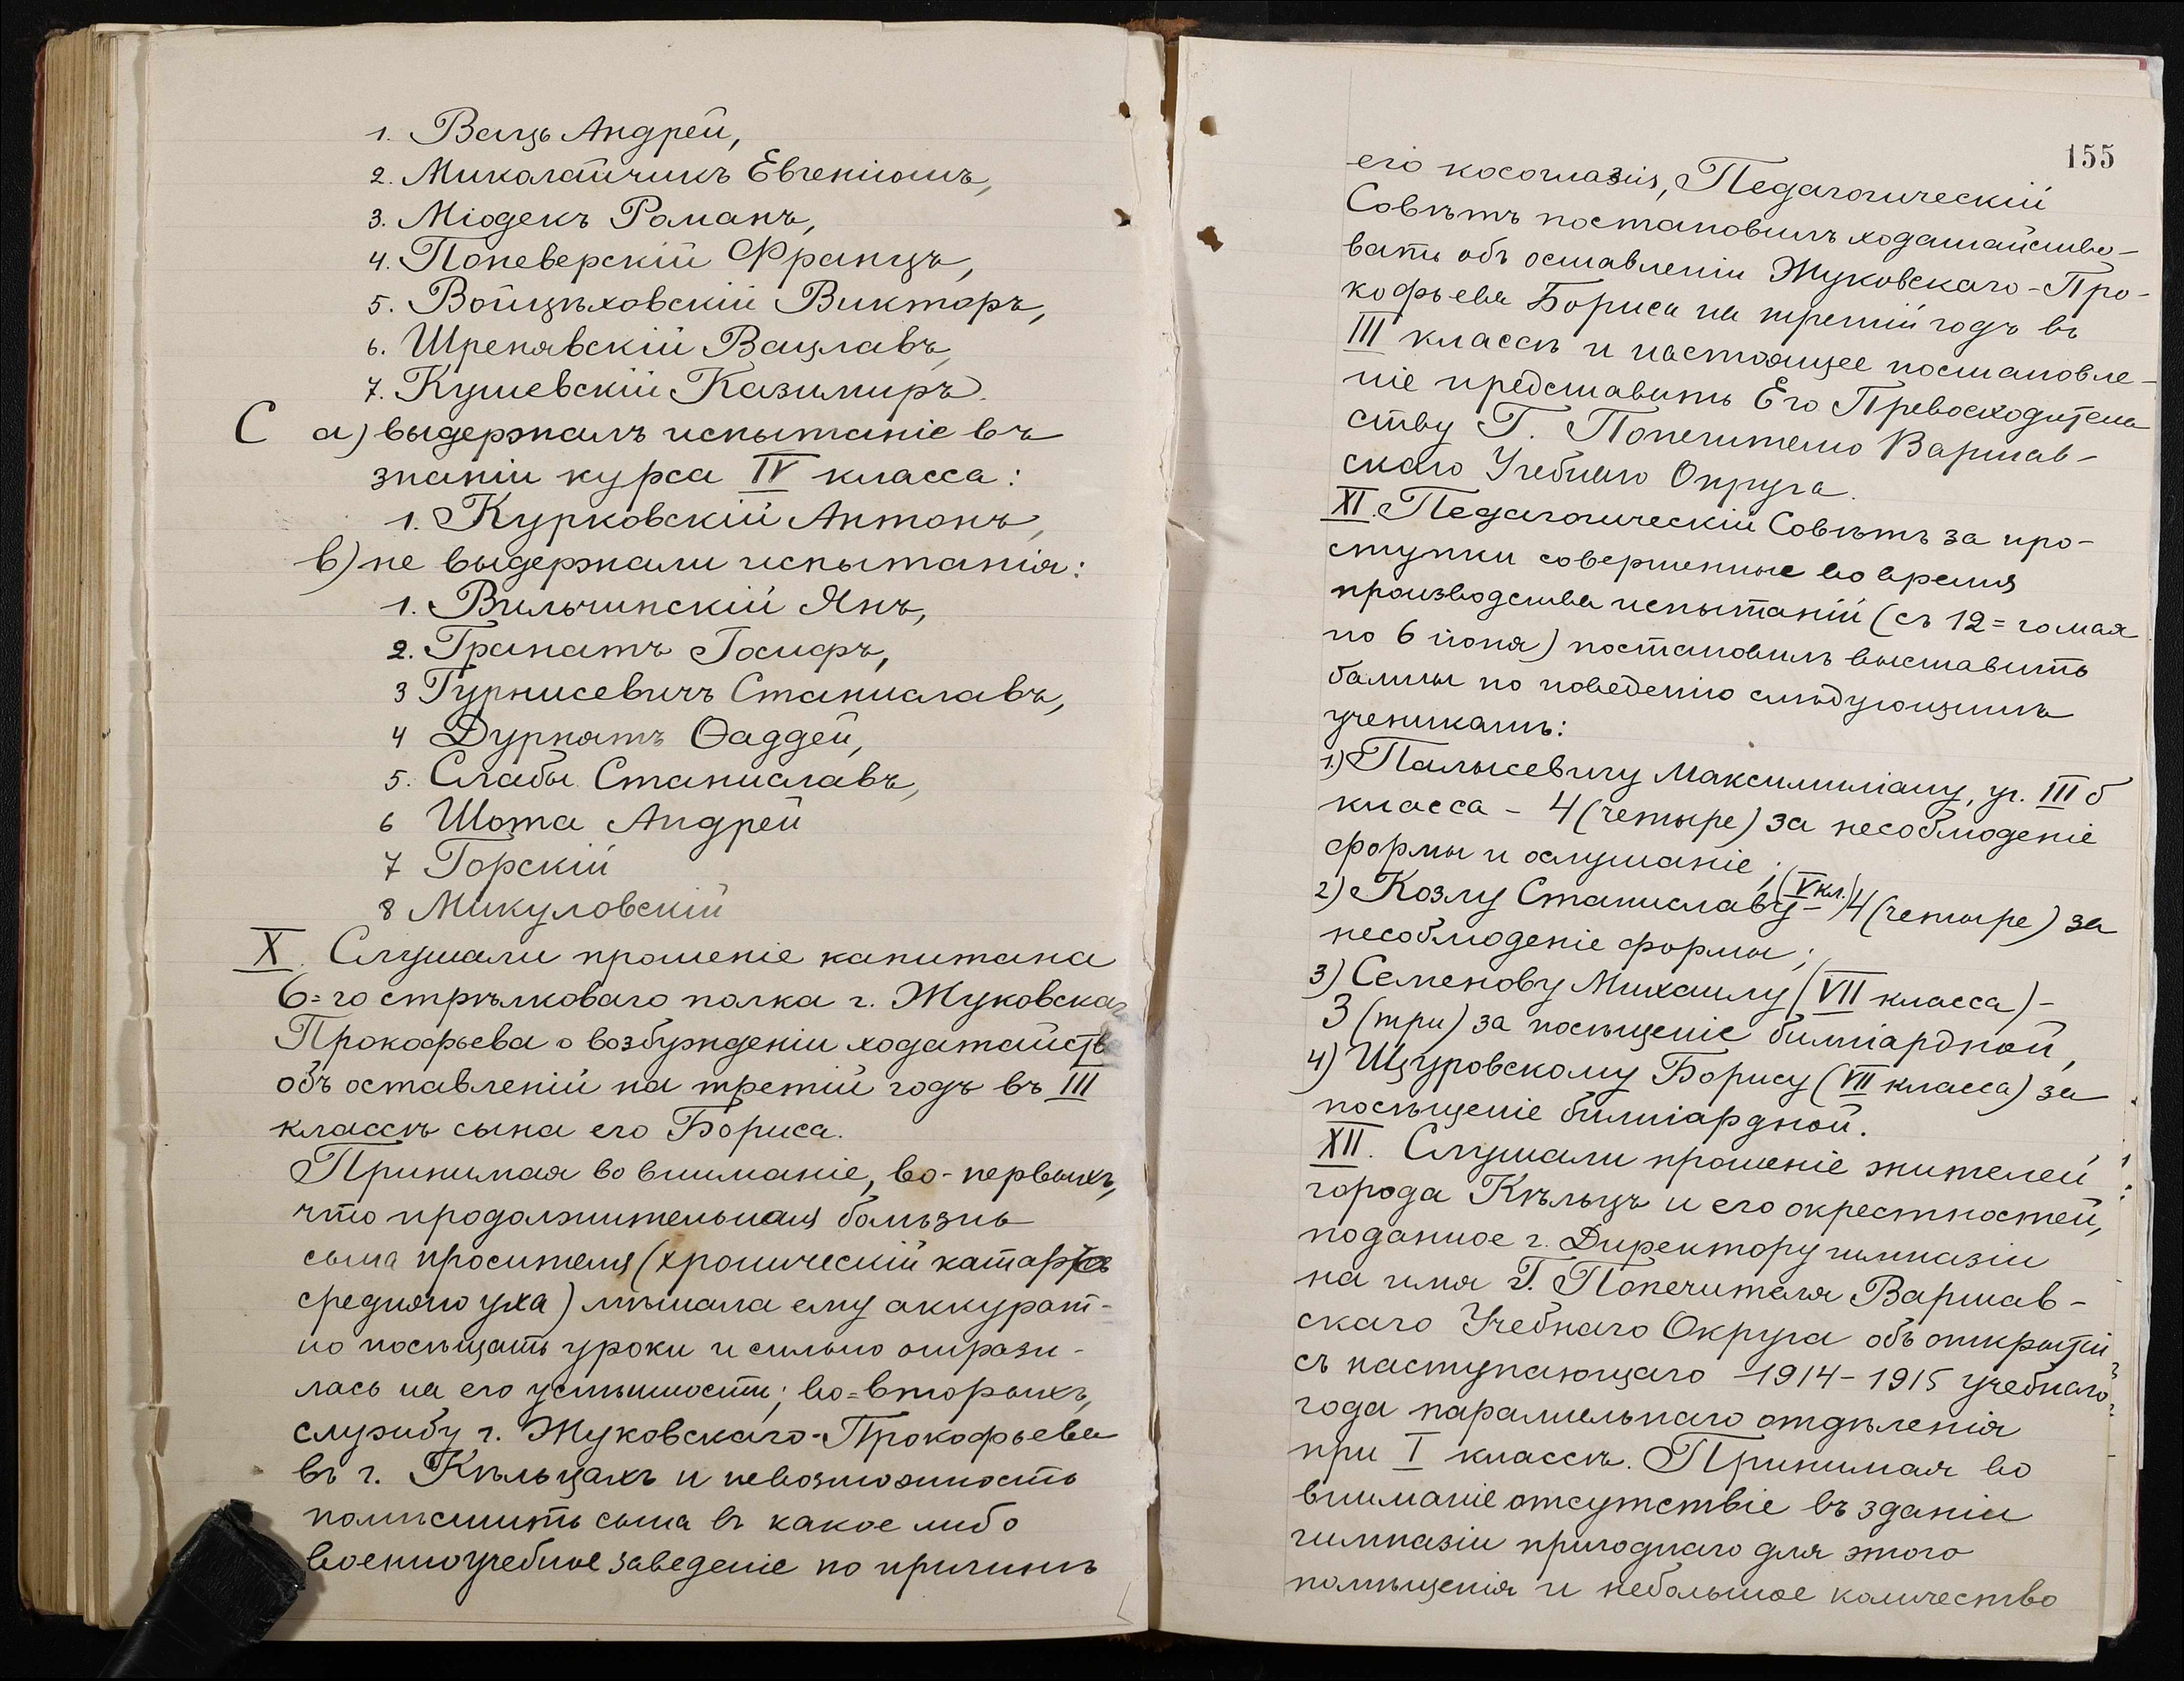 1. Вацъ Андрей,
2. Миколайчикъ Евгеніюшъ,
3. Міодекъ Романъ,
4. Поневерскій Францъ,
5. Войцѣховскій Викторъ,
6. Шренявскій Вацлавъ,
7. Кушевскій Казимиръ.
С а) выдержалъ испытаніе въ
знаніи курса IV класса:
1. Курковскій Антонъ,
в) не выдержали испытанія:
1. Вильчинскій Янъ,
2. Гранатъ Іосифъ,
3 Гурнисевичъ Станиславъ,
4 Дурнятъ Ѳаддей,
5. Слабы Станиславъ,
6 Шота Андрей
7 Горскій
8 Микуловскій
X. Слушали прошеніе капитана
6=го стрѣлковаго полка г. Жуковскаго
Прокофьева о возбужденіи ходатайств
объ оставленій на третій годъ въ III
классѣ сына его Бориса.
Принимая во вниманіе, во-первыхъ,
что продолжительная болѣзнь
сына просителя (хроническій катарръ
средняго уха) мѣшала ему аккурат-
но посѣщать уроки и сильно отрази-
лась на его успѣшности; во=вторыхъ,
службу г. Жуковскаго-Прокофьева
въ г. Кѣльцахъ и невозможность
помѣстить сына въ какое либо
военноучебное заведеніе по причинѣ
155
его косоглазія, Педагогическій
Совѣтъ постановилъ ходатайство-
вать объ оставленіи Жуковскаго-Про-
кофьева Бориса на третій годъ въ
III классѣ и настоящее постановле-
ніе представить Его Превосходитель
ству Г. Попечителю Варшав-
скаго Учебнаго Округа.
XI. Педагогическій Совѣтъ за про-
ступки совершенные во время
производства испытаній (съ 12=го мая
по 6 іюня) постановилъ выставить
баллы по поведенію слѣдующимъ
ученикамъ:
1.) Палысевичу Максимиліану, уч. III б
класса - 4 (четыре) за несоблюденіе
формы и ослушаніе;
2) Козлу Станиславу (V кл.) - 4 (четыре) за
несоблюденіе формы;
3) Семенову Михаилу (VII класса) -
3 (три) за посѣщеніе билліардной,
4) Щуровскому Борису (VII класса) за
посѣщеніе билліардной.
XII. Слушали прошеніе жителей
города Кѣльцъ и его окрестностей,
поданное г. Директору гимназіи
на имя Г. Попечителя Варшав-
скаго Учебнаго Округа объ открытіи
съ наступающаго 1914-1915 учебнаго
года параллельнаго отдѣленія
при I классѣ. Принимая во
вниманіе отсутствіе въ зданіи
гимназіи пригоднаго для этого
помѣщенія и небольшое количество